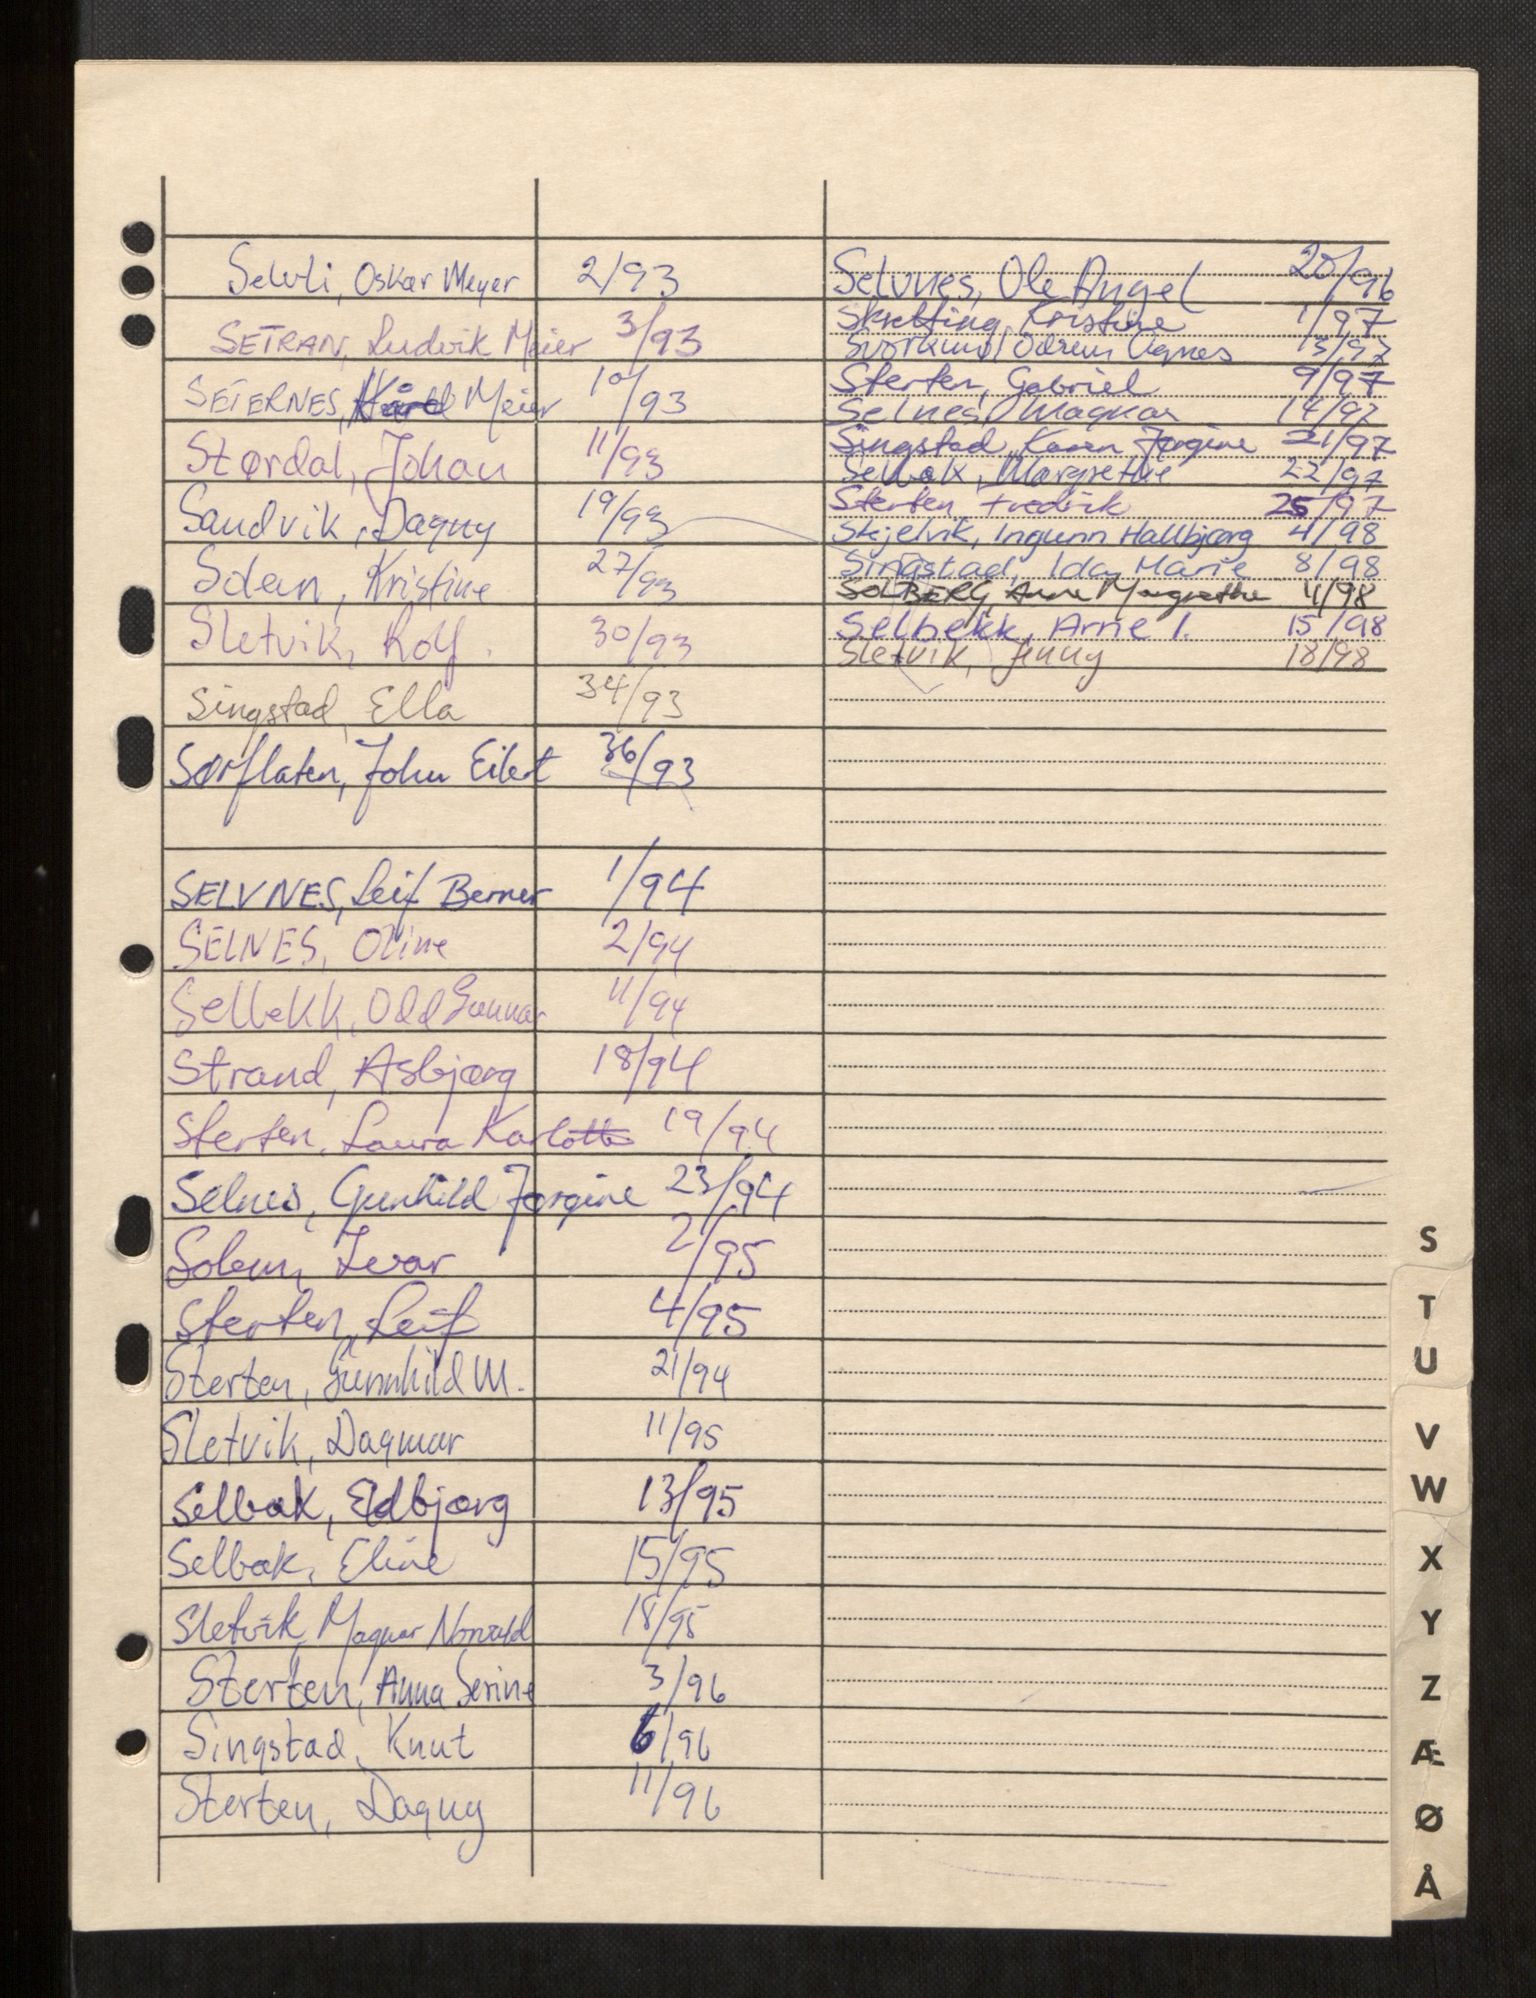 Selvli, Oskar Meyer 2/93
SETRAN, Ludvik Meier 3/93
SETERNES, Meier 10/93
Størdal, Johan 11/93
Sandvik, Dagny 19/93
Solem, Kristine 27/93
Sletvik, Rolf. 30/93
Singstad, Ella 34/93
Sørflaten, John Eilert 36/93
SELVNES, Leif Berner 1/94
SELNES, Oline 2/94
Selbekk, Odd Gunnar 11/94
Strand, Asbjørg 18/94
Sterten, Laura Karlotte 19/94
Selnes, Gunhild Jørgine 23/94
Solem, Ivar 2/95
Sterten, Leif 4/95
Sterten, Gunnhild M. 21/94
Sletvik, Dagmar 11/95
Selbak, Eldbjørg 13/95
Selbak, Eline 15/95
Sletvik, Magnar Norvald 18/95
Sterten, Anna Serine 3/96
Singstad, Knut 6/96
Sterten, Dagny 11/96
Selvnes, Ole Angel 20/96
Skretting, Kristine 1/97
Svorkmo, Ødrun Agnes /97
Sterten, Gabriel 9/97
Selnes, Magnar 14/97
Singstad, Karen Jørgine 21/97
Selbak, Margrethe 22/97
Sterten, Fredrik 25/97
Skjelvik, Ingunn Hallbjørg 4/98
Singstad, Ida Marie 8/98
SOLBERG, Anne Margrethe 11/98
Selbekk, Arne I. 15/98
Sletvik, Jenny 18/98
S
T
U
V
W
X
Y
Z
Æ
Ø
Å